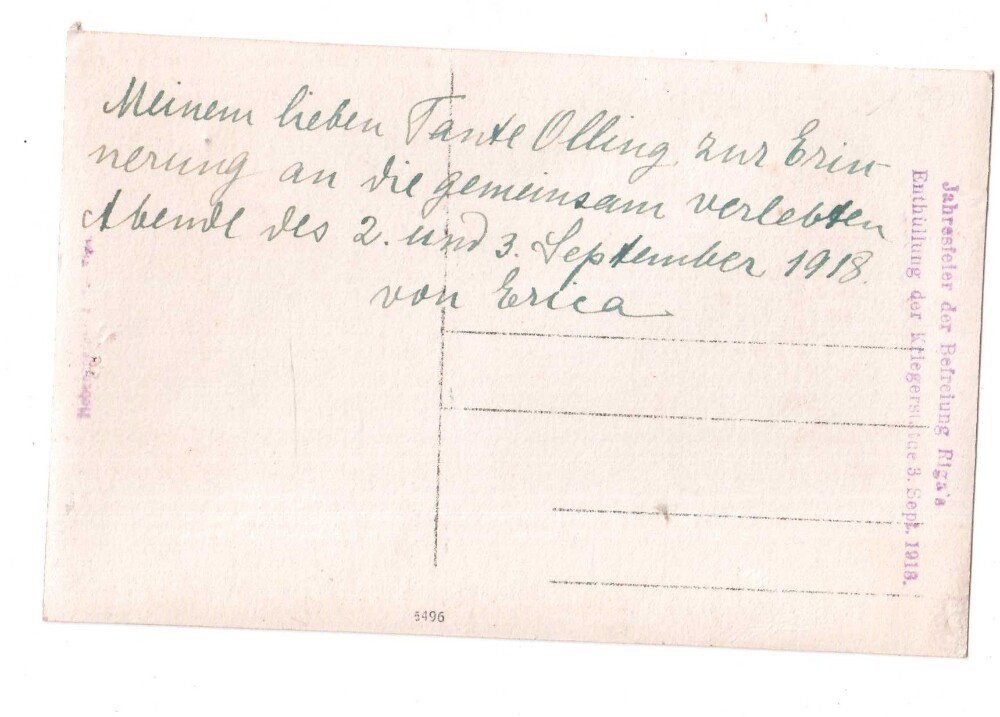 Meinem lieben Tante Olling zur Erin-
nerung an die gemeinsam verlebten
Abende des 2. und 3. September 1918.
von Erica
Jahresfeier der Befreiung Riga's
Enthüllung der Kriegerstatue 3. Sept. 1918.
5496